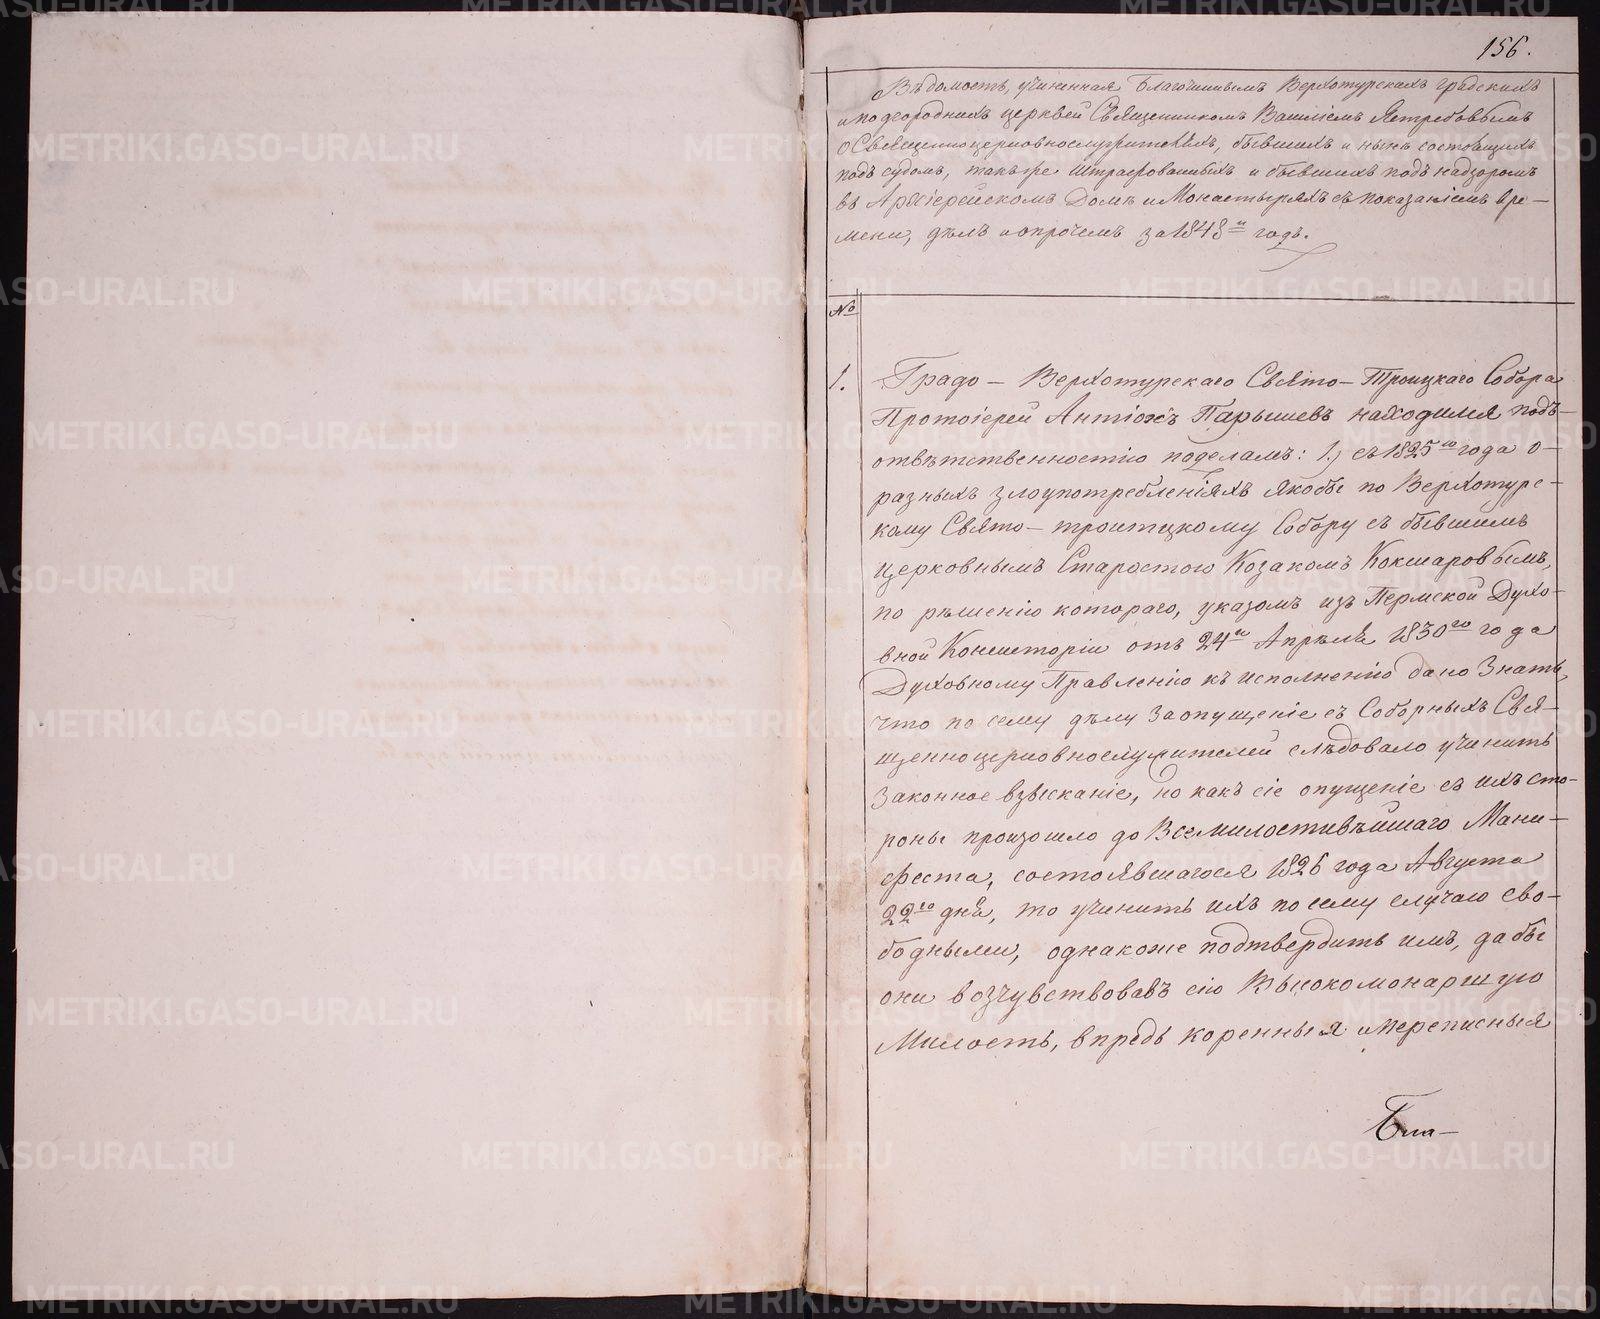 156.
Вѣдомость, учиненная Благочиннымъ Верхотурскихъ градскихъ
и подгородныхъ церквей Священникомъ Василіемъ Ястребовымъ
о Священноцерковнослужителяхъ, бывшихъ и нынѣ состоящихъ
подъ судомъ, также штрафованныхъ и бывшихъ подъ надзоромъ
въ Архіерейскомъ Домѣ и Монастыряхъ съ показаніемъ вре-
мени, дѣлъ и опрочемъ за 1848й годъ.
№
1. Градо - Верхотурскаго Свято - Троицкаго Собора
Протоіерей Антіохъ Парышевъ находился подъ-
отвѣтственностію поделамъ: 1.) съ 1825го года о-
разныхъ злоупотребленіяхъ якобы по Верхотурс-
кому Свято - троитцкому Собору съ бывшимъ
церковнымъ Старостою Козакомъ Кокшаровымъ,
по рѣшенію котораго, указомъ изъ Пермской Духо-
вной Консисторіи отъ 24го Апрѣля 1830го года
Духовному Правленію къ исполненію дано Знать,
что по сему дѣлу За опущеніе съ Соборныхъ Свя-
щенноцерковнослужителей слѣдовало учинить
Законное взысканіе, но какъ сіе опущеніе съ ихъ сто-
роны произошло до Всемилостивѣйшаго Мани-
феста, состоявшагося 1826 года Августа
22го дня, то учинить ихъ по сему случаю сво-
бодными, однакоже подтвердить имъ, дабы
они возчувствовавъ сію Высокомонаршую
Милость, впредь коренныя и переписныя